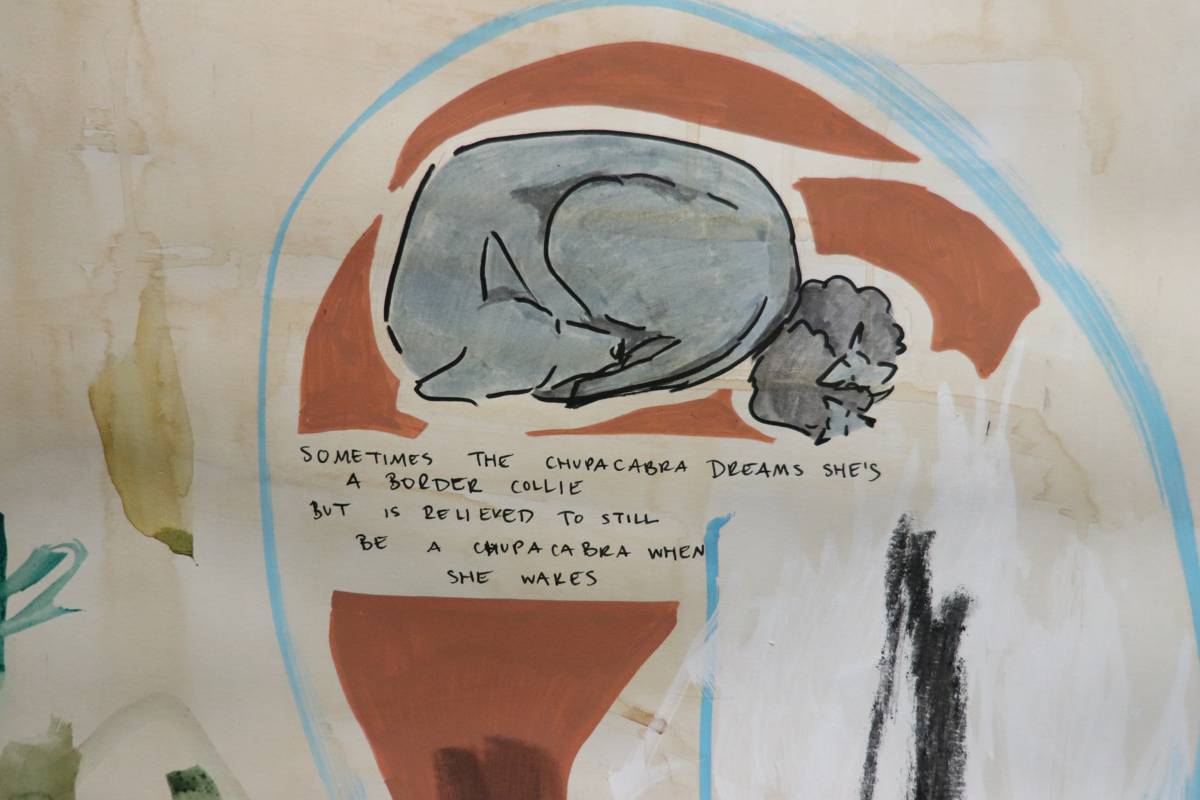 SOMETIMES THE CHUPACABRA DREAMS SHE'S
A BORDER COLLIE
BUT IS RELIEVED TO STILL
BE A CHUPACABRA WHEN
SHE WAKES